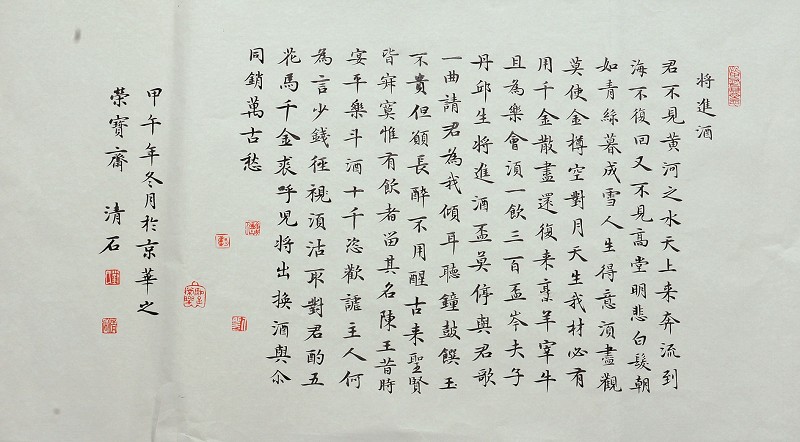 將進酒
君不見黃河之水天上来奔流到
海不復回又不見高堂明悲白髮朝
如青絲暮成雪人生得意須盡觀
莫使金樽空對月天生我材必有
用千金散盡還復来烹羊宰牛
且為樂會須一飲三百盃岑夫子
丹邱生將進酒盃莫停與君歌
一曲請君為我傾耳聽鐘鼓饌玉
不貴但願長醉不用醒古来聖賢
皆寂寞惟有飲者留其名陳王昔時
宴平樂斗酒十千恣歡謔主人何
為言少錢徑視須沽取對君酌五
花馬千金裘呼児將出換酒與尒
同銷萬古愁
甲午年冬月於京華之
榮寶齋 清石